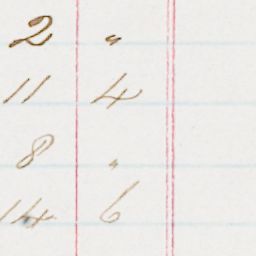 2 "
11 4
8 "
14 6